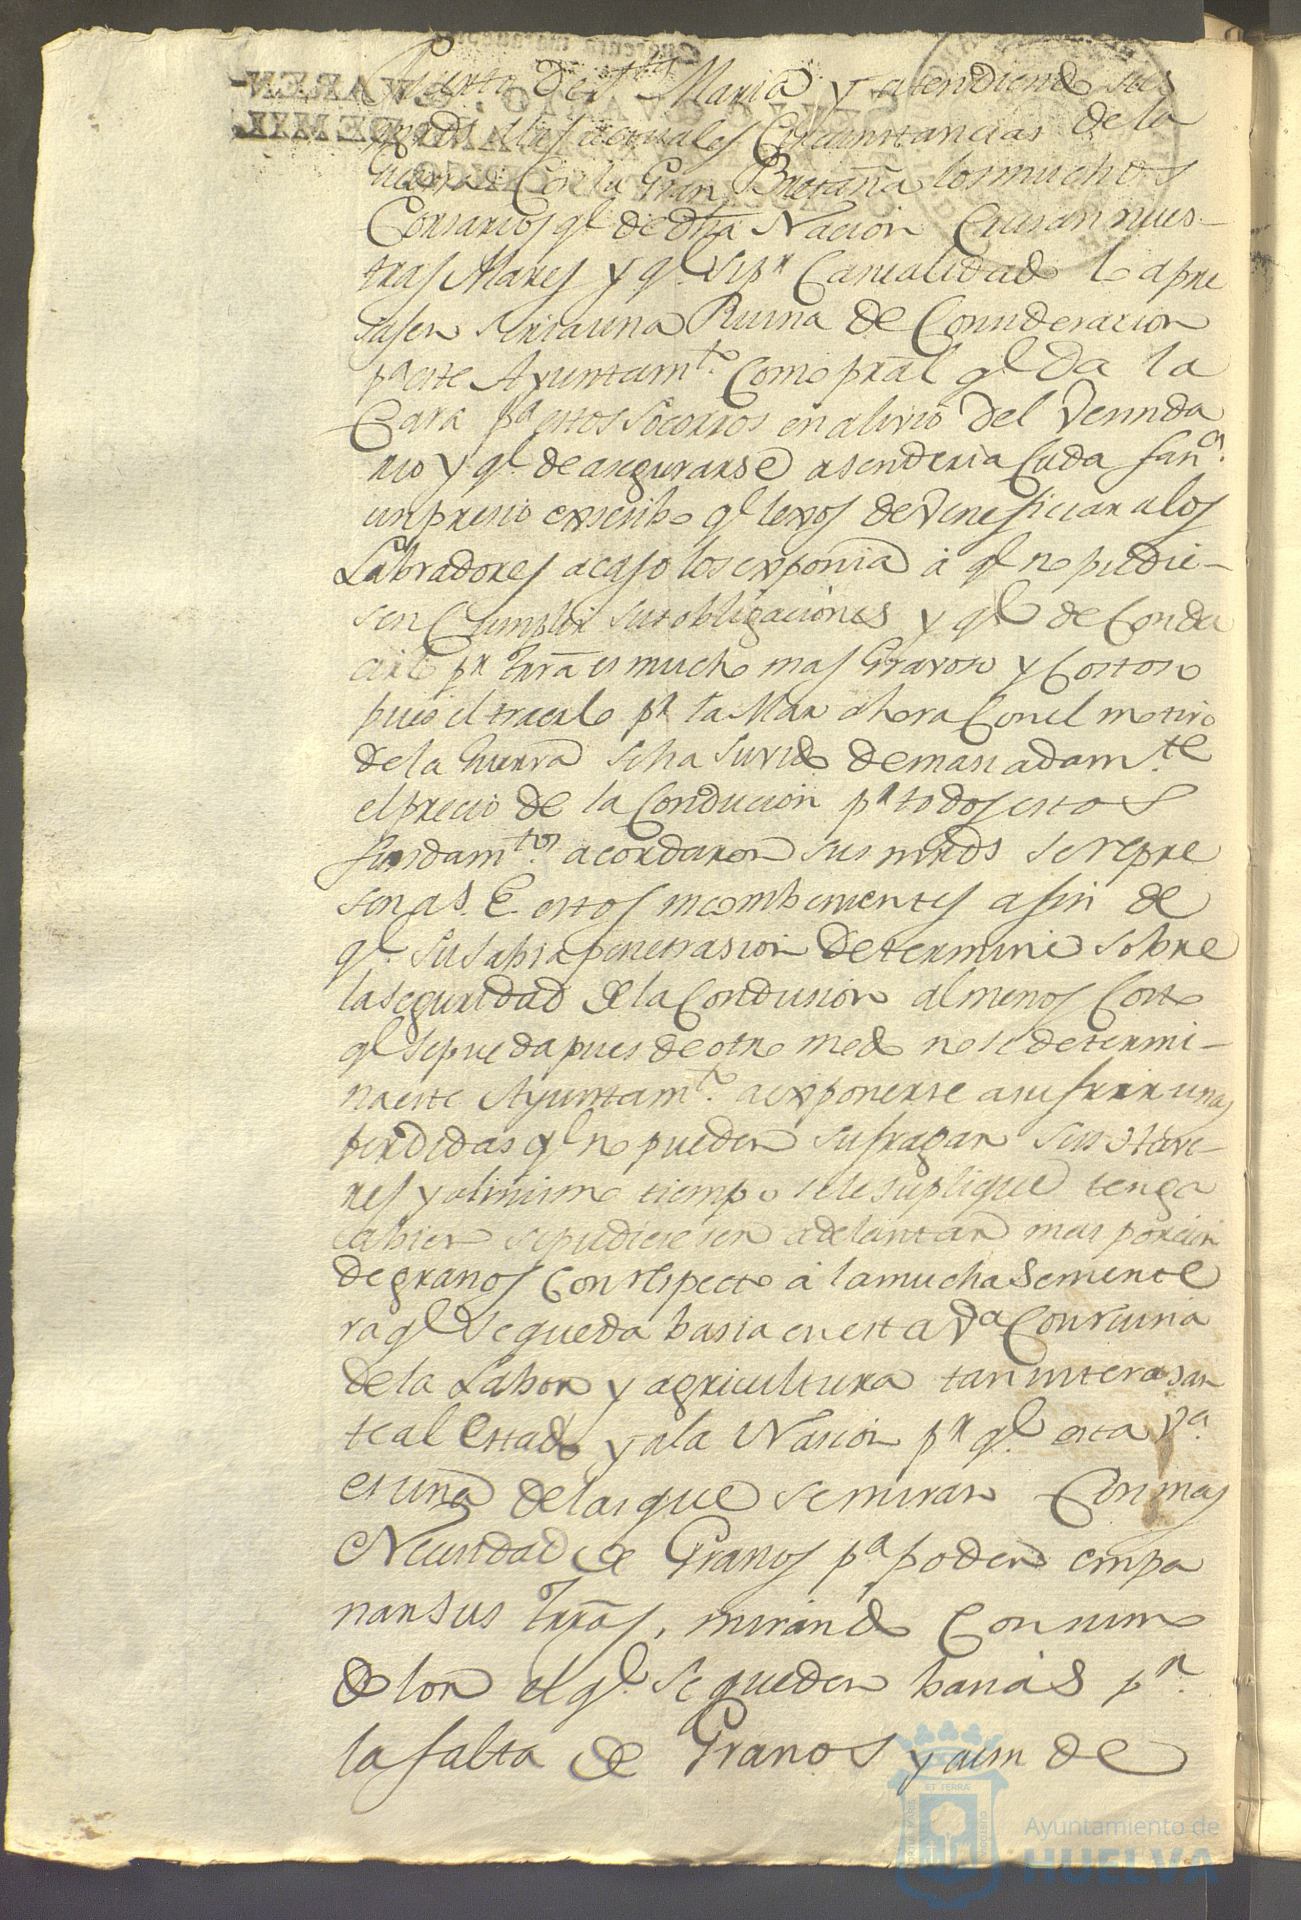 Puerto de Sta Maria y atendiendo sus
mrds a las actuales Circunstancias de la
Guerra Con la Gran Bretaña los muchos
Corsarios ql de dha Nacion Crusan nues-
tras Mares y ql si pr Casualidad lo apre
sasen seria una Ruina de Considerazion
pa este Ayuntamto. Como pral ql Da la
Cara pa estos Socorros en alivio del Vesinda
rio y ql de asegurarse asenderia Cada fana.
un presio exsesibo ql lexos de Venefisiar a los
Labradores acaso los exponia â ql no pudie-
sen Cumplir sus obligaciones y ql de Condu
cirlo pr trrā es mucho mas Gravoso y Costoso
pues el traerlo pr la Mar ahora Con el motivo
de la Guerra se ha suvido demasiadamte
el precio de la Conducion pr todos estos
fundamtos acordaron sus mrds se repre
sen a S. E. estos incombenientes a fin de
ql Su sabia penetrasion Determine sobre
la seguridad de la Condusion al menos Costo
ql se pueda pues de otro modo no se determi-
na este Ayuntamto. a exponerse a sufrir unas
perdidas ql no pueden sufragar sus Have-
res y al mismo tiempo se le suplique tenga
a bien si pudiesen adelantar mas porcion
de granos Con respecto â la mucha Semente
ra ql se queda basia en esta Va Con ruina
de la Labor y agricultura tan interasan
te al Estado y a la Nasion pr ql esta Va.
es una de las que se miran Con mas
Necesidad de Granos pa poder empa
nar sus trrās, mirando Con sumo
dolor el ql se queden basias pr.
la falta de Granos y aun de
Ayuntamiento de
HUELVA